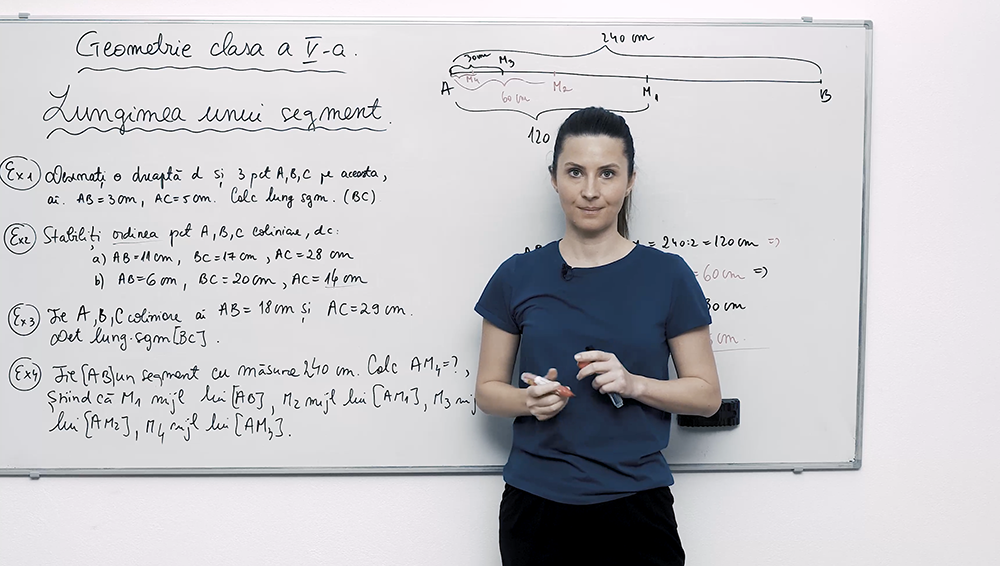 Geometrie clasa a V-a.
Lungimea unui segment.
Ex1 Desenați o dreaptă d și 3 pct A,B,C pe aceasta,
aî. AB=3cm, AC=5cm. Calc lung sgm. (BC)
Ex2 Stabiliți ordinea pct A,B,C coliniare, dc:
a) AB=11cm, BC=17cm, AC=28cm
b) AB=6cm, BC=20cm, AC=14cm
Ex3 Fie A,B,C coliniare aî AB=18cm și AC=29cm.
Det lung.sgm[BC].
Ex4 Fie [AB]un segment cu măsura 240 cm. Calc AM4=?,
știind că M1 mijl lui [AB], M2 mijl lui [AM1], M3 mij
lui [AM2], M4 mijl lui [AM3].
240 cm
30cm M3
A M4 M2 M1 B
60cm
120
= 240:2=120cm =>
= 60cm =>
30 cm
cm